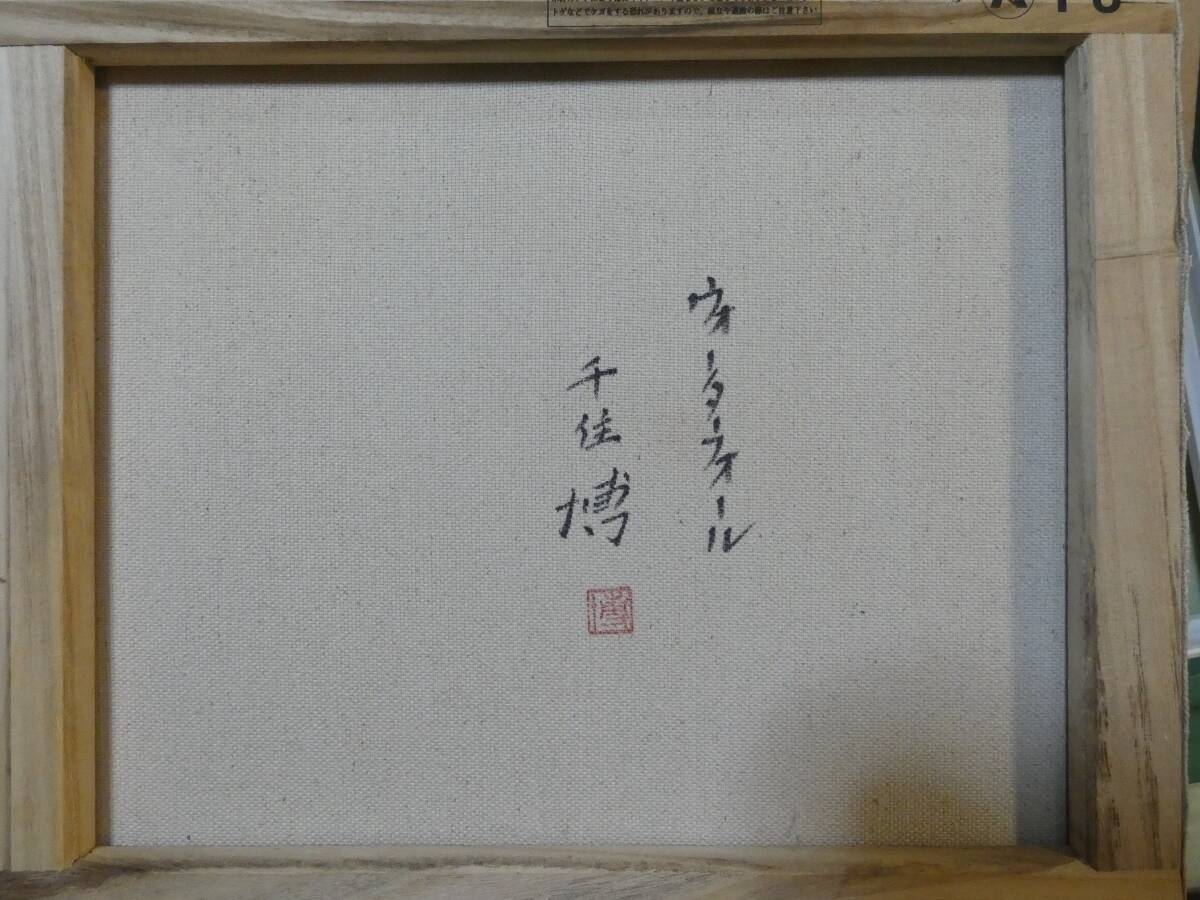 トゲなどでケガをする恐れがありますので、組立や運搬の際はご注意下さい
ウォーターフォール
千住 博
博